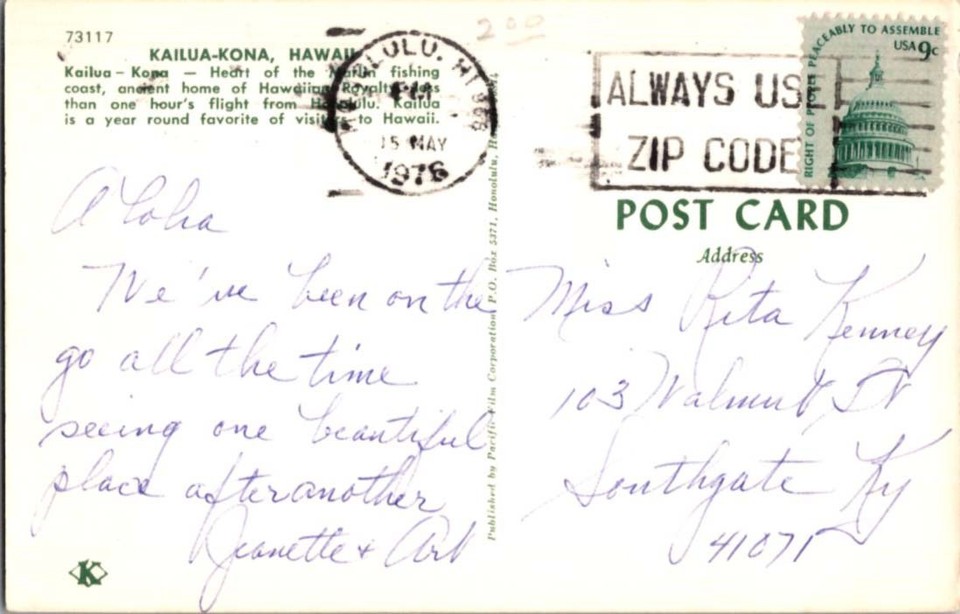 73117
KAILUA-KONA, HAWAII
Kailua-Kona — Heart of the Marlin fishing
coast, ancient home of Hawaiian Royalty, less
than one hour's flight from Honolulu. Kailua
is a year round favorite of visitors to Hawaii.
Aloha
We've been on the
go all the time
seeing one beautiful
place after another
Jeanette & Art
K
Published by Pacific Film Corporation, P.O. Box 5371, Honolulu,
HONOLULU, HI
PM
15 MAY
1978
200
ALWAYS USE
ZIP CODE
RIGHT OF PEOPLE PEACEABLY TO ASSEMBLE
USA 9c
POST CARD
Address
Miss Rita Kenney
103 Walnut St
Southgate Ky
41071